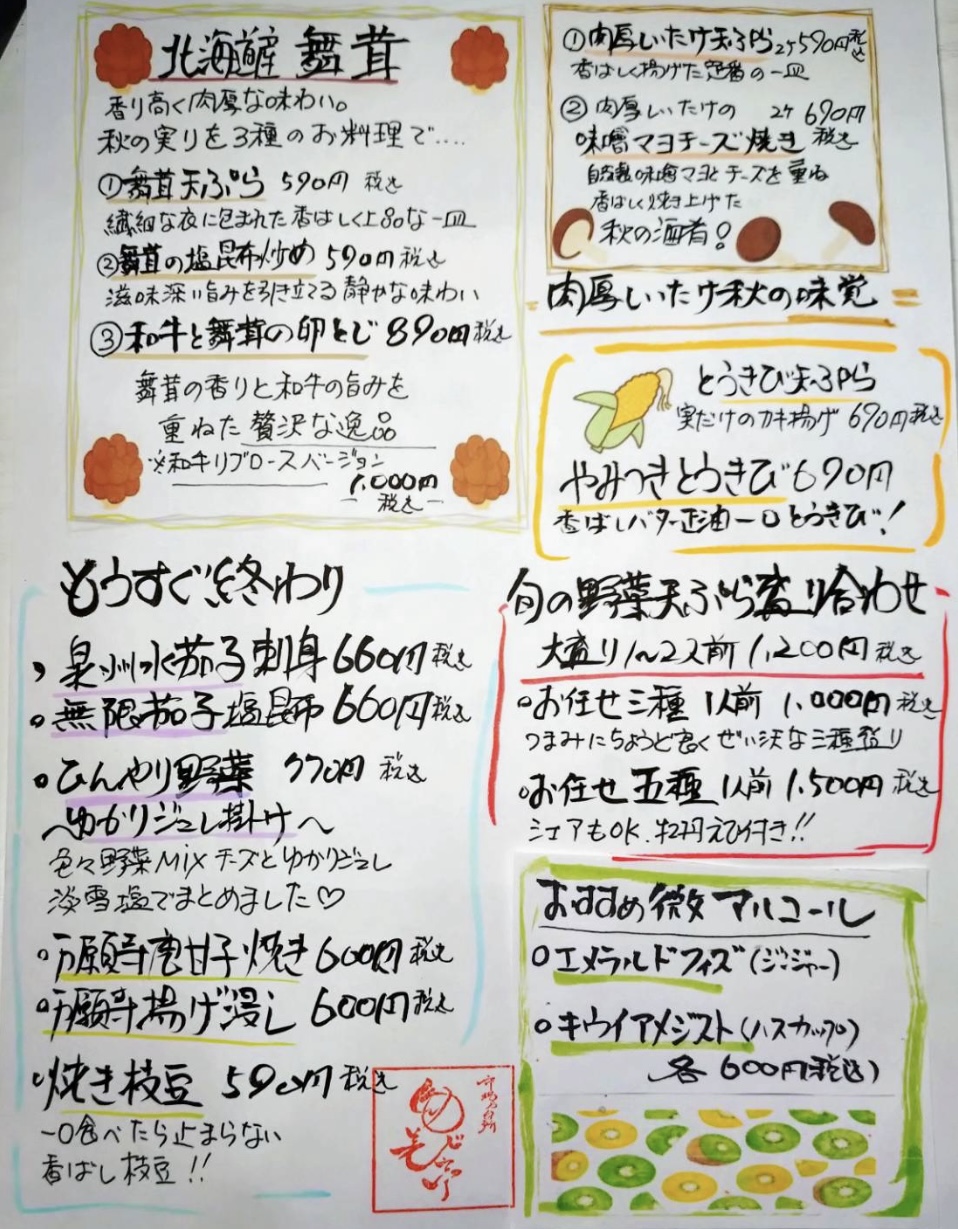 北海道産 舞茸
香り高く肉厚な味わい。
秋の実りを3種のお料理で....
①舞茸天ぷら 590円 税込
繊細な衣に包まれた香ばしく上品な一皿
②舞茸の塩昆布炒め 590円 税込
滋味深い旨みを引き立てる静かな味わい
③和牛と舞茸の卵とじ 890円 税込
舞茸の香りと和牛の旨みを
重ねた贅沢な逸品
※和牛リブロースバージョン
1,000円
税込
①肉厚しいたけ天ぷら 2ケ590円 税込
香ばしく揚げた定番の一皿
②肉厚しいたけの 2ケ 690円
味噌マヨチーズ焼き 税込
自家製味噌マヨとチーズを重ね
香ばしく焼き上げた
秋の酒肴!
肉厚しいたけ秋の味覚
とうきび天ぷら
実だけのカキ揚げ 690円 税込
やみつきとうきび 690円
香ばしバター正油一口とうきび!
もうすぐ終わり
泉州水茄子刺身 660円 税込
無限茄子塩昆布 660円 税込
ひんやり野菜 770円 税込
〜ゆかりジュレ掛け〜
色々野菜MIXチーズとゆかりジュレ
淡雪塩でまとめました♡
万願寺唐甘子焼き 600円 税込
万願寺揚げ浸し 600円 税込
焼き枝豆 590円 税込
一口食べたら止まらない
香ばし枝豆!!
旬の野菜天ぷら盛り合わせ
大盛り1〜2人前 1,200円 税込
お任せ三種 1人前 1,000円 税込
つまみにちょうど良くぜい沢な三種盛り
お任せ五種 1人前 1,500円 税込
シェアもOK、牡丹えび付き!!
おすすめ微アルコール
エメラルドフィズ(ジンジャー)
キウイアメジスト(ハスカップ)
各 600円(税込)